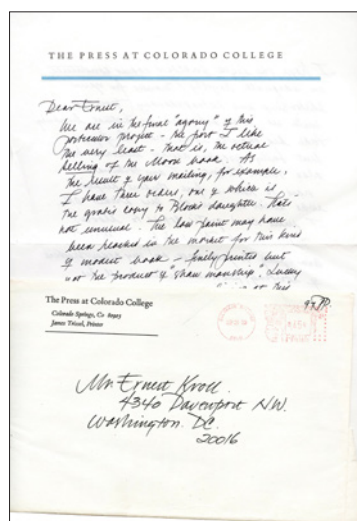 THE PRESS AT COLORADO COLLEGE
Dear Ernest,
We are in the final "agony" of this
particular project - the part I like
the very least - that is, the actual
selling of the Moore book. As
the result of your mailing, for example,
I have three orders, one of which is
the gratis copy to Block's daughter. That's
not unusual. The low point may have
been reached in the market for this kind
of modest book - finely printed but
not the product of "showmanship".
The Press at Colorado College
Colorado Springs, Co 80903
James Trissel, Printer
Mr. Ernest Kroll
4340 Davenport N.W.
Washington. DC.
20016